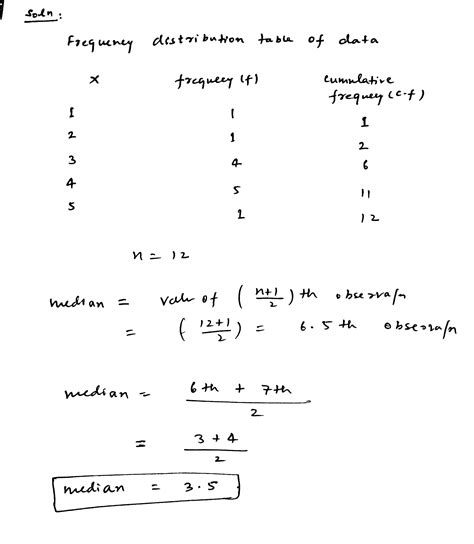 Soln :
Frequency distribution table of data
x frequecy (f) cumulative frequey (c.f)
1 1 1
2 1 2
3 4 6
4 5 11
5 1 12
n = 12
median = valu of ( n+1 / 2 ) th obserra/n
= ( 12+1 / 2 ) = 6.5 th obserra/n
median = 6th + 7th / 2
= 3 + 4 / 2
median = 3.5